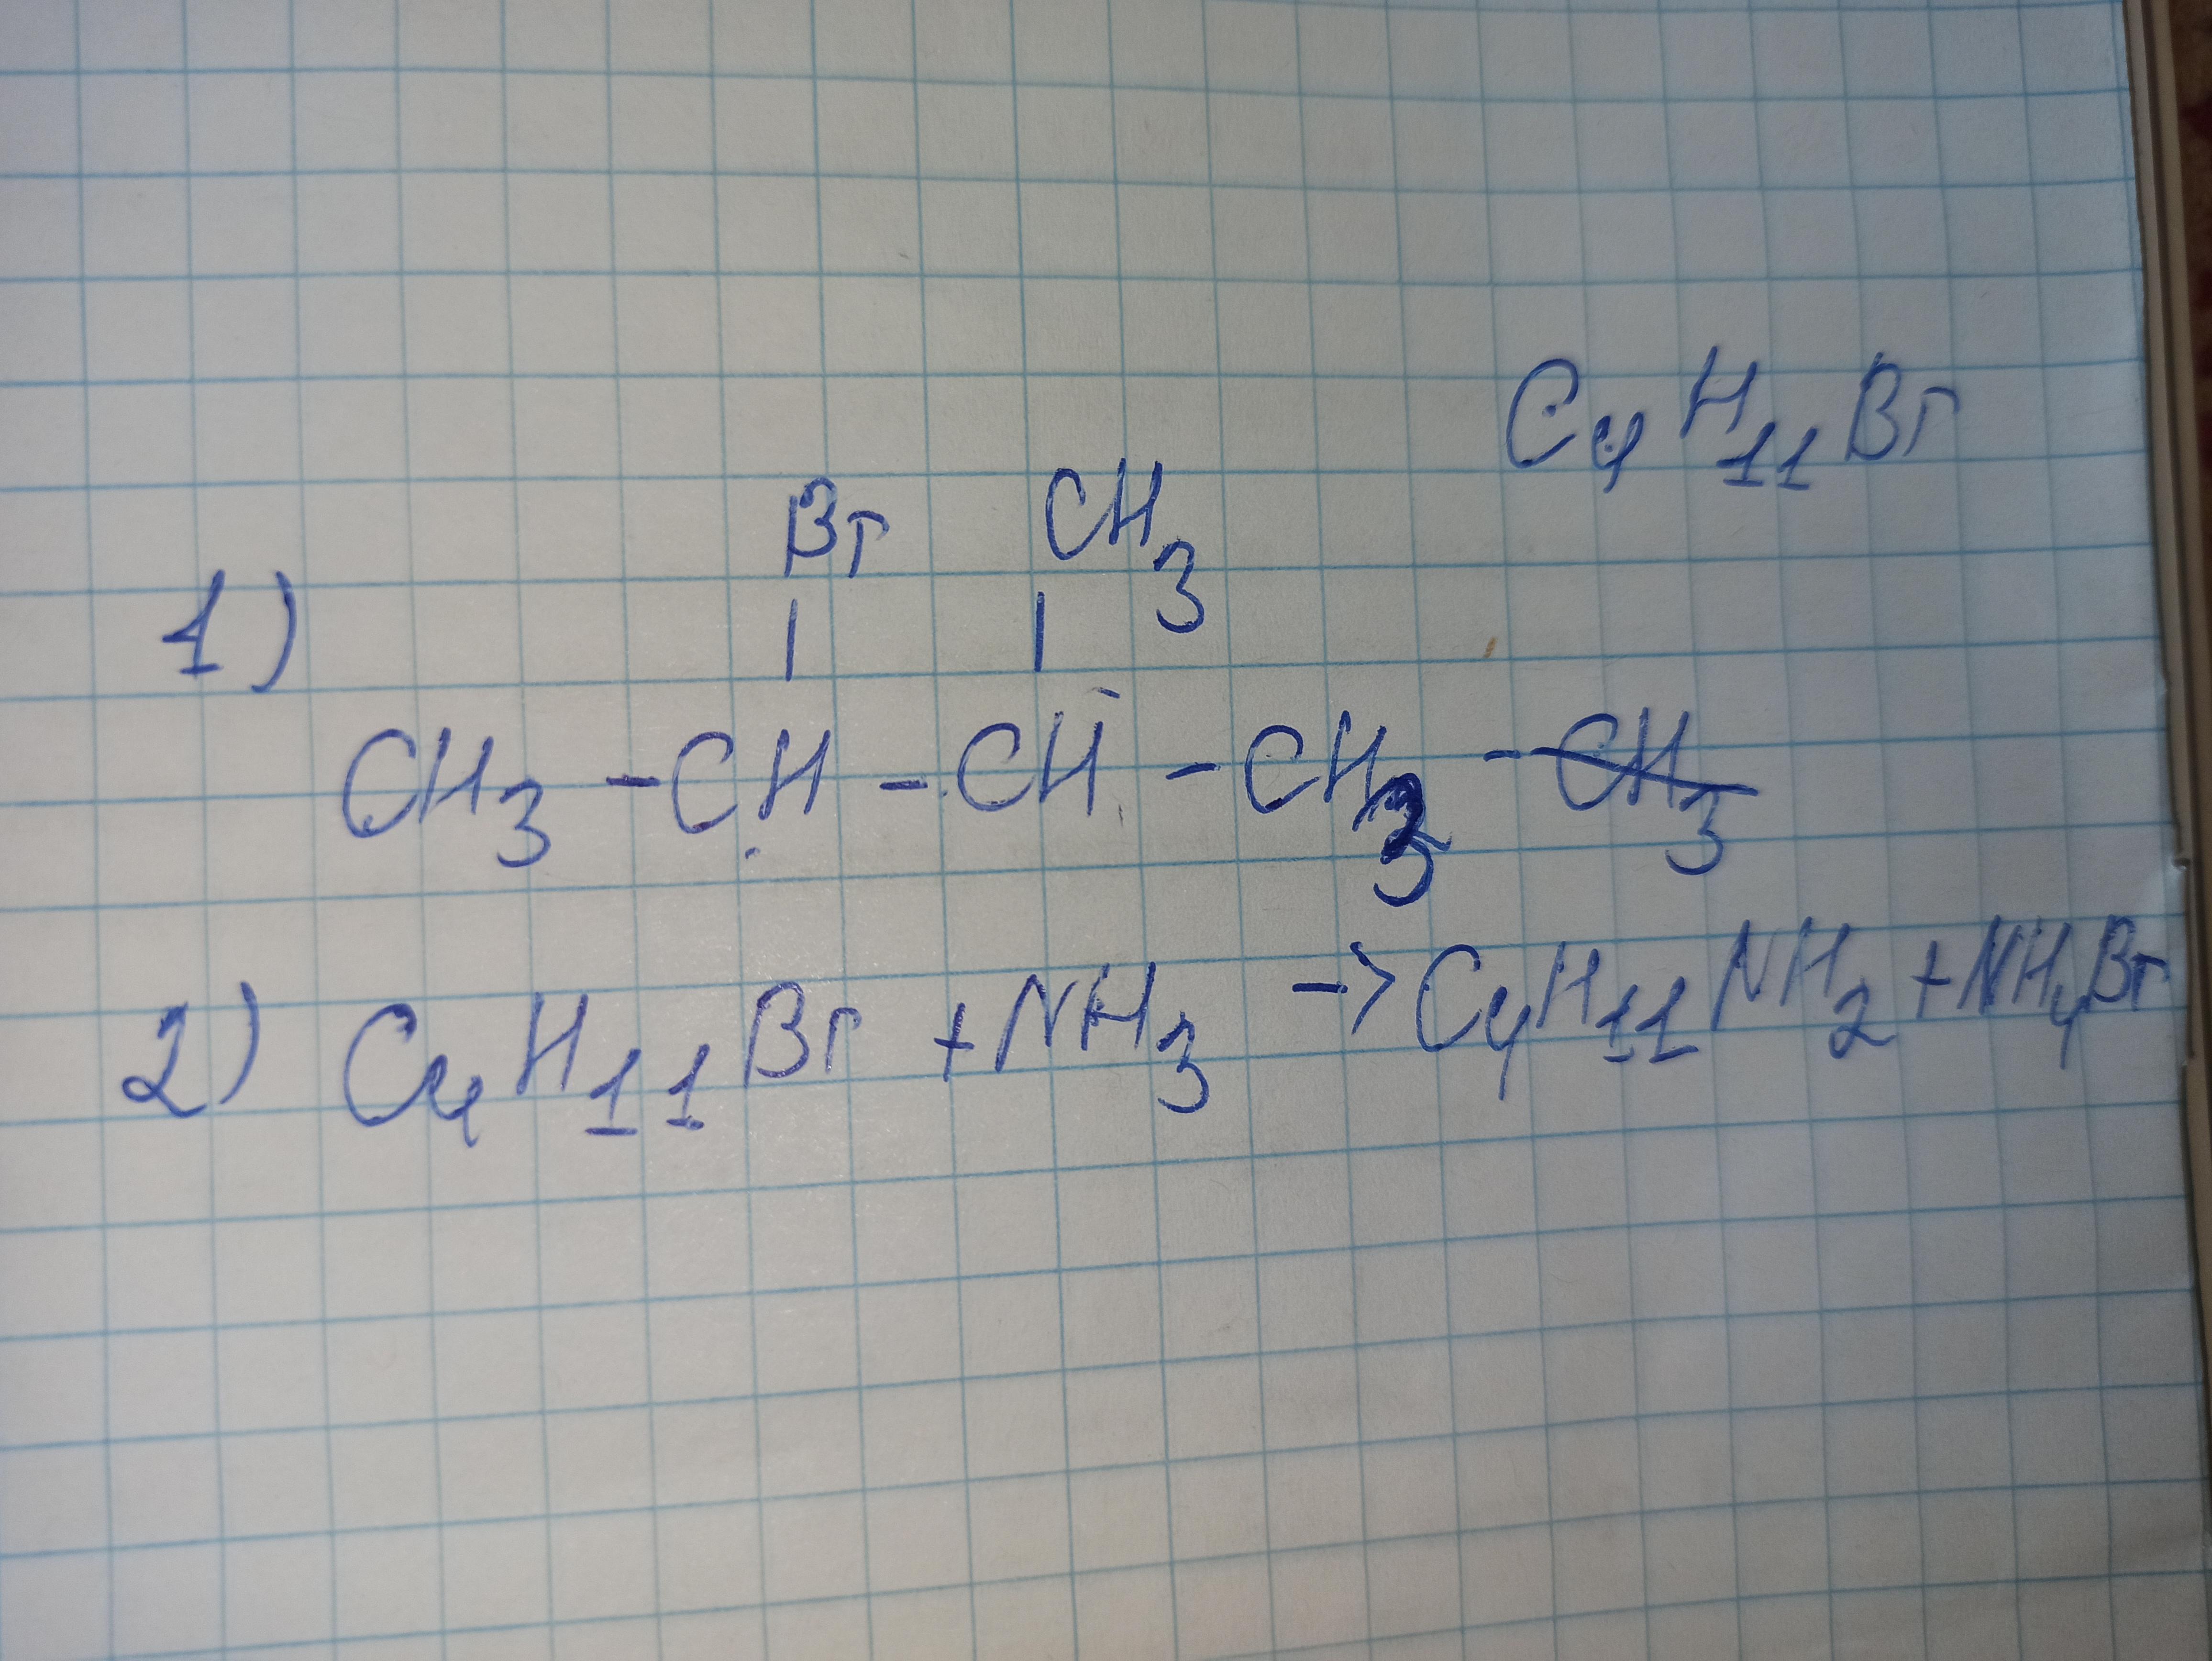 C4H11Br
Br CH3
1)
CH3 - CH - CH - CH3 - CH3
2) C4H11Br + NH3 -> C4H11NH2 + NH4Br